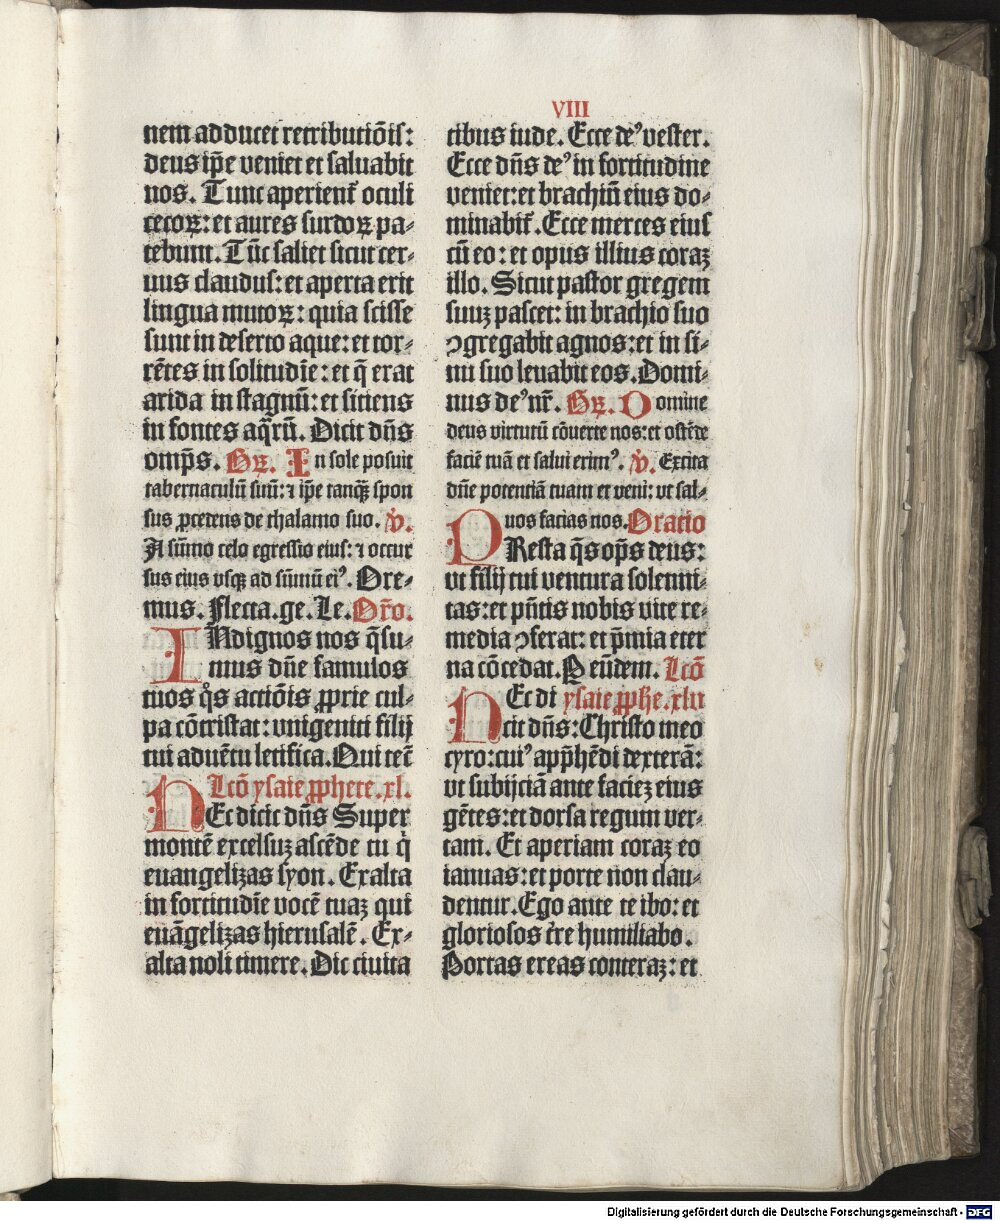 VIII
nem adducet retributiōis:
deus ip̄e veniet et saluabit
nos. Tunc aperient᷑ oculi
cecoꝝ: et aures surdoꝝ pa-
tebunt. Tūc saliet sicut cer-
uus claudus: et aperta erit
lingua mutoꝝ: quia scisse
sunt in deserto aque: et tor-
rētes in solitudīe: et q̄ erat
arida in stagnū: et sitiens
in fontes aq̄rū. Dicit dn̄s
omp̄s. Gꝝ. In sole posuit
tabernaculū suū: ⁊ ip̄e tanqꝫ spon
sus ꝓcedens de thalamo suo. v̊.
A sūmo celo egressio eius: ⁊ occur
sus eius vsqꝫ ad sūmū eiꝰ. Ore-
mus. Flecta. ge. Le. Or̄o.
INdignos nos q̄su-
mus dn̄e famulos
tuos q̊s actiōis ꝓprie cul-
pa cōtristat: vnigeniti filij
tui aduētu letifica. Qui tec̄
Lcō ysaie ꝓphete. xl.
HEc dicit dn̄s Super
montē excelsuꝫ ascēde tu q̇
euangelizas syon. Exalta
in fortitudīe vocē tuaꝫ qui
euāgelizas hierusalē. Ex-
alta noli timere. Dic ciuita
tibus iude. Ecce deꝰ vester.
Ecce dn̄s deꝰ in fortitudine
veniet: et brachiū eius do-
minabit᷑. Ecce merces eius
cū eo: et opus illius coraꝫ
illo. Sicut pastor gregem
suuꝫ pascet: in brachio suo
ꝯgregabit agnos: et in si-
nu suo leuabit eos. Domi-
nus deꝰ nr̄. Gꝝ. Domine
deus virtutū cōuerte nos: et ostēde
faciē tuā et salui erimꝰ. v̊. Excita
dn̄e potentiā tuam et veni: vt sal-
uos facias nos. Oratio
PResta q̄s op̄s deus:
vt filij tui ventura solenni-
tas: et pn̄tis nobis vite re-
media ꝯferat: et p̄mia eter
na cōcedat. P eūdem. Lcō
HEc di ysaie ꝓphe. xlv
cit dn̄s: Christo meo
cyro: cuiꝰ app̄hēdi dexterā:
vt subijciā ante facieꝫ eius
gētes: et dorsa regum ver-
tam. Et aperiam coraꝫ eo
ianuas: et porte non clau-
dentur. Ego ante te ibo: et
gloriosos t̄re humiliabo.
Portas ereas conteraꝫ: et
Digitalisierung gefördert durch die Deutsche Forschungsgemeinschaft - DFG